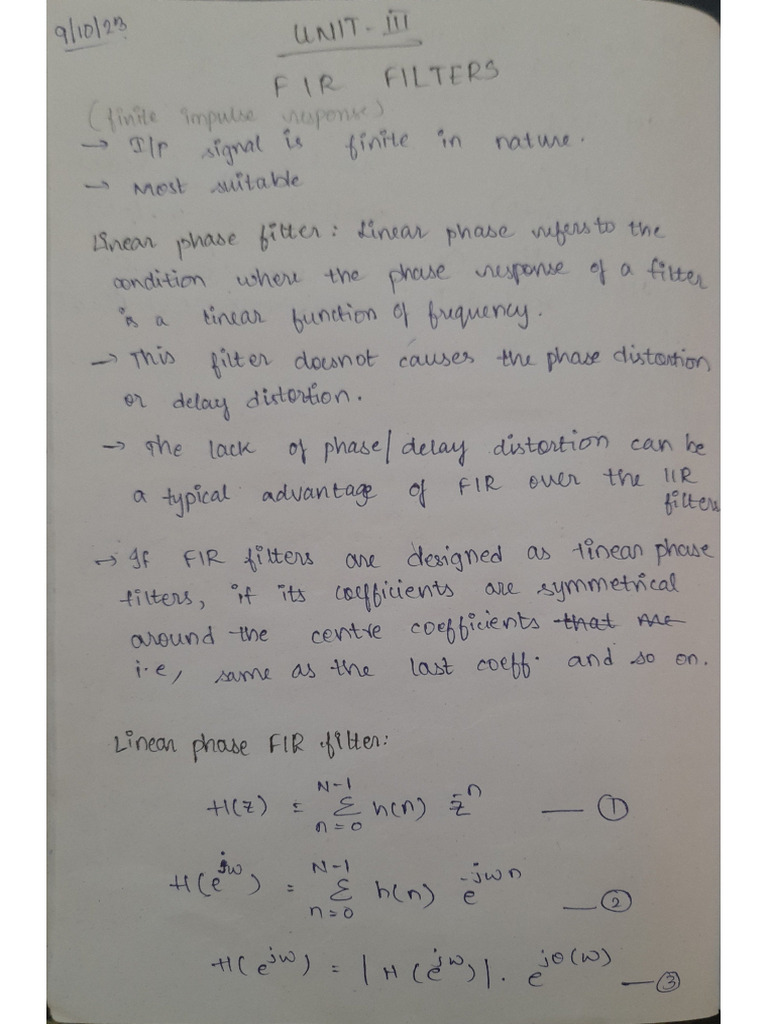 9/10/23
UNIT-III
FIR FILTERS
(finite impulse response)
→ I/p signal is finite in nature.
→ Most suitable
Linear phase filter: Linear phase refers to the
condition where the phase response of a filter
is a linear function of frequency.
→ This filter doesnot causes the phase distortion
or delay distortion.
→ The lack of phase/delay distortion can be
a typical advantage of FIR over the IIR
filters
→ If FIR filters are designed as linear phase
filters, if its coefficients are symmetrical
around the centre coefficients that are
i.e, same as the last coeff. and so on.
Linear phase FIR filter:
H(z) = Σ_{n=0}^{N-1} h(n) z^{-n} — ①
H(e^{jω}) = Σ_{n=0}^{N-1} h(n) e^{-jωn} — ②
H(e^{jω}) = |H(e^{jω})|. e^{jθ(ω)} — ③